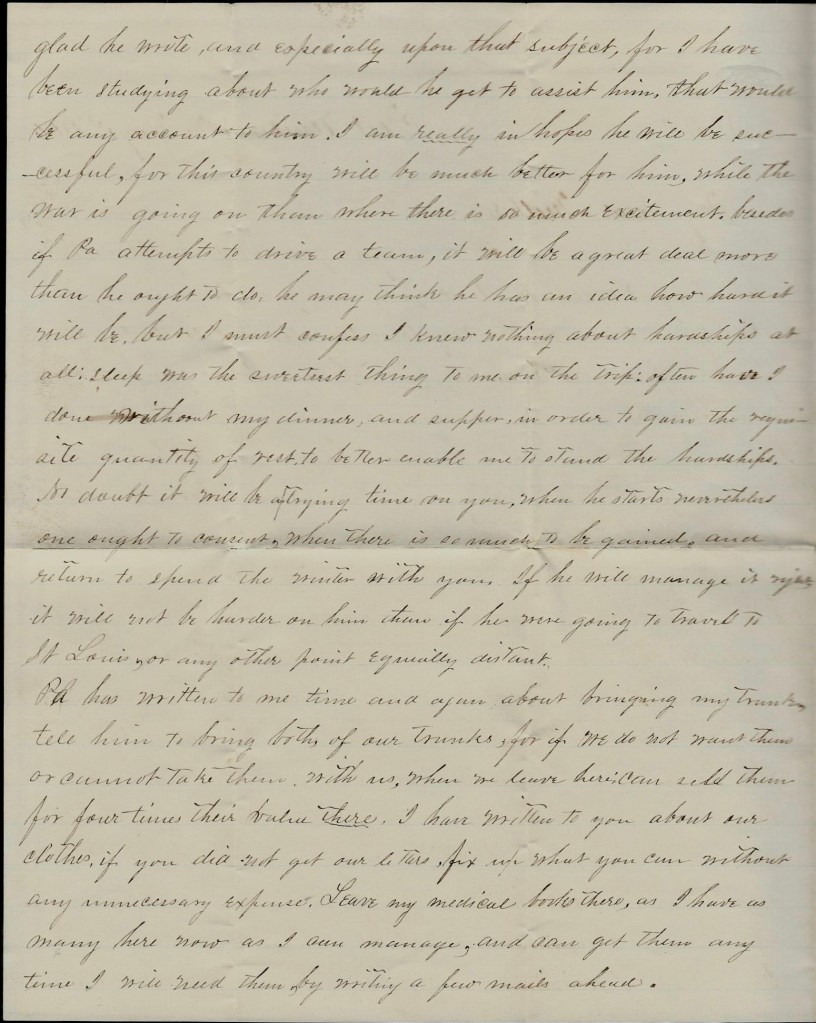 glad he wrote, and especially upon that subject, for I have
been studying about who would he get to assist him, that would
be any account to him. I am really in hopes he will be suc-
-cessful, for this country will be much better for him, while the
war is going on than where there is so much excitement. besides
if Pa attempts to drive a team, it will be a great deal more
than he ought to do, he may think he has an idea how hard it
will be, but I must confess I knew nothing about hardships at
all: sleep was the sweetest thing to me on the trip: often have I
done without my dinner, and supper, in order to gain the requi-
site quantity of rest, to better enable me to stand the hardships.
No doubt it will be a trying time on you, when he starts nevertheless
one ought to consent, when there is so much to be gained, and
return to spend the winter with you. If he will manage it
it will not be harder on him than if he were going to travel to
St Louis, or any other point equally distant.
Pa has written to me time and again about bringing my trunk,
tell him to bring both of our trunks, for if we do not want them
or cannot take them with us, when we leave here: can sell them
for four times their value there. I have written to you about our
clothes, if you did not get our letters, fix up what you can without
any unnecessary expense. Leave my medical books there, as I have as
many here now as I can manage, and can get them any
time I will need them, by writing a few mails ahead.